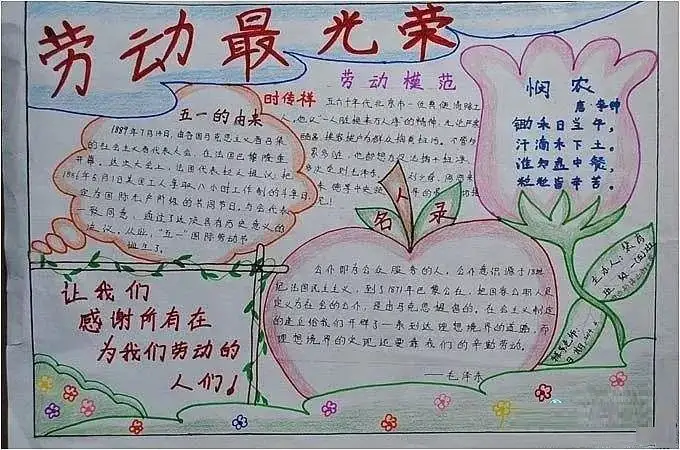 劳动最光荣
五一的由来
1889年7月14日,由各国马克思主义者召集
的社会主义者代表大会,在法国巴黎隆重
开幕。这次大会上,法国代表拉人提议:把
1886年5月1日美国工人争取八小时工作制的斗争日,
定为国际无产阶级的共同节日。与会代表
一致同意,通过了这项具有历史意义的
决议。从此,“五一”国际劳动节
诞生了。
劳动模范
时传祥
五六十年代北京市一位粪便清除工
人,他以“一人脏换来万人净”的精神,无论严寒
悯农
锄禾日当午,
汗滴禾下土。
谁知盘中餐,
粒粒皆辛苦。
名人录
公仆即为公众服务的人,公仆意识源于18世
纪法国民主主义,到了1871年巴黎公社,把国家公职人员
定义为社会的公仆,是由马克思提出的。在社会主义制度
的建立给我们开辟了一条到达理想境界的道路,而
理想境界的实现还要靠我们的辛勤劳动。
——毛泽东
让我们
感谢所有在
为我们劳动的
人们!
主办人: